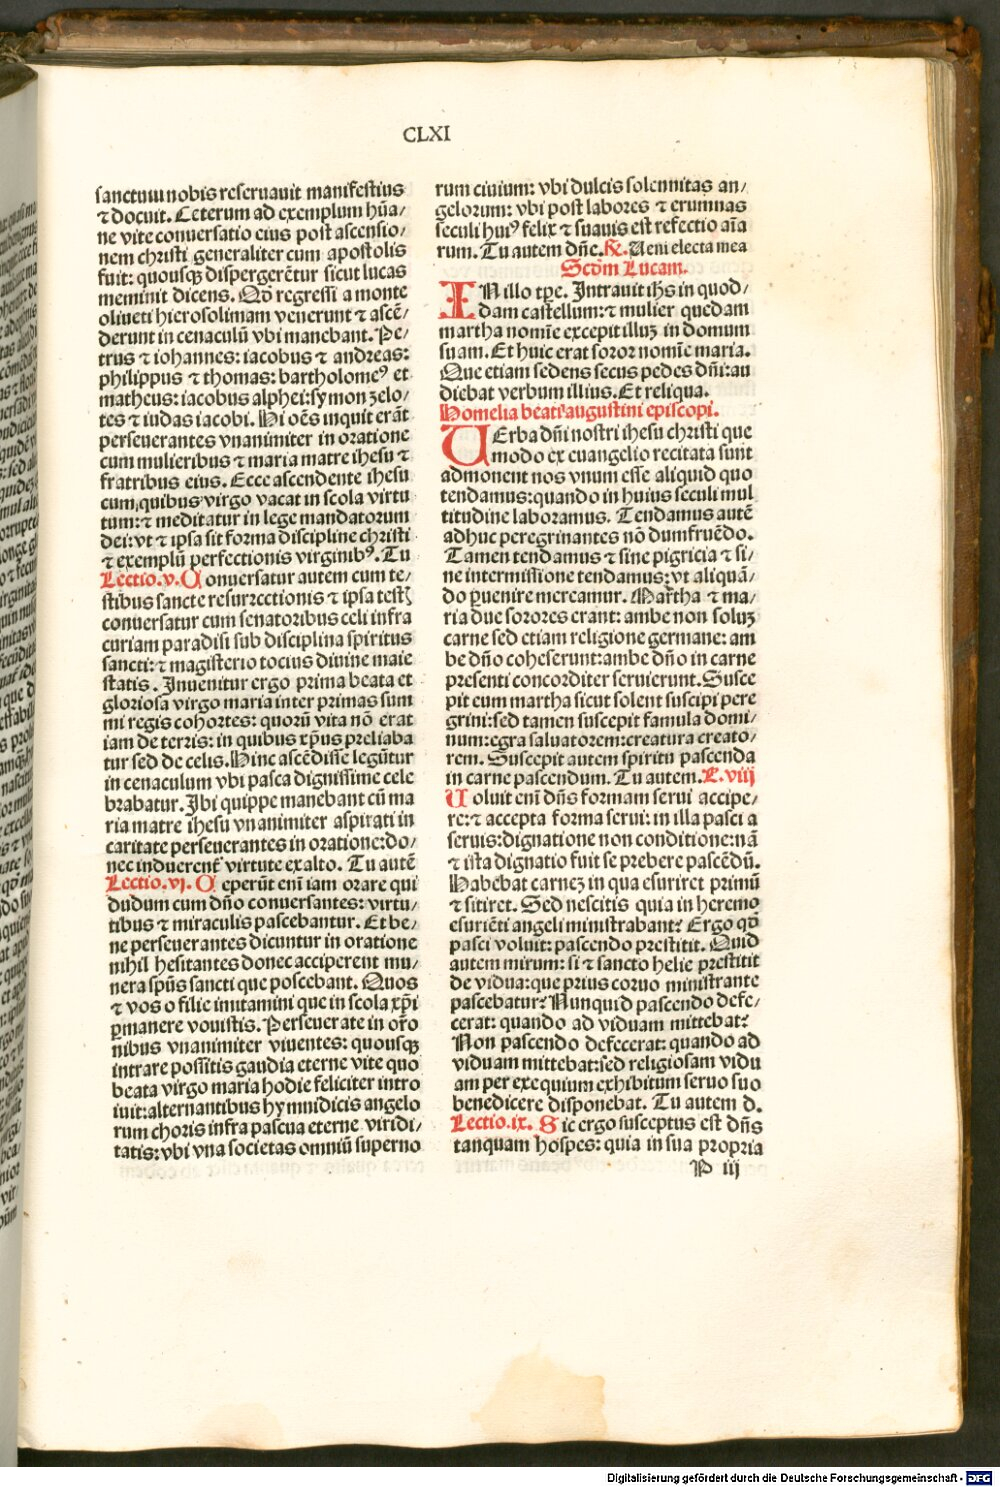 CLXI
sanctum nobis reseruauit manifestius
⁊ docuit. Ceterum ad exemplum hūa/
ne vite conuersatio eius post ascensio/
nem christi generaliter cum apostolis
fuit: quousqꝫ dispergerētur sicut lucas
meminit dicens. Qd̄ regressi a monte
oliueti hierosolimam venerunt ⁊ ascē/
derunt in cenaculū vbi manebant. Pe/
trus ⁊ iohannes: iacobus ⁊ andreas:
philippus ⁊ thomas: bartholomeꝰ et
matheus: iacobus alphei: symon zelo/
tes ⁊ iudas iacobi. Hi oēs inquit erāt
perseuerantes vnanimiter in oratione
cum mulieribus ⁊ maria matre ihesu ⁊
fratribus eius. Ecce ascendente ihesu
cum quibus virgo vacat in scola virtu
tum: ⁊ meditatur in lege mandatorum
dei: vt ⁊ ipsa sit forma discipline christi
⁊ exemplū perfectionis virginibꝰ. Tu
Lectio.v. Conuersatur autem cum te/
stibus sancte resurrectionis ⁊ ipsa testꝭ
conuersatur cum senatoribus celi infra
curiam paradisi sub disciplina spiritus
sancti: ⁊ magisterio tocius diuine maie
statis. Inuenitur ergo prima beata et
gloriosa virgo maria inter primas sum
mi regis cohortes: quorū vita nō erat
iam de terris: in quibus xp̄us preliaba
tur sed de celis. Hinc ascēdisse legūtur
in cenaculum vbi pasca dignissime cele
brabatur. Ibi quippe manebant cū ma
ria matre ihesu vnanimiter aspirati in
caritate perseuerantes in oratione: do/
nec induerent̄ virtute ex alto. Tu autē
Lectio.vj. Ceperūt enī iam orare qui
dudum cum dn̄o conuersantes: virtu/
tibus ⁊ miraculis pascebantur. Et be/
ne perseuerantes dicuntur in oratione
nihil hesitantes donec acciperent mu/
nera spūs sancti que poscebant. Quos
⁊ vos o filie imitamini que in scola xp̄i
ꝑmanere vouistis. Perseuerate in or̄o
nibus vnanimiter viuentes: quousqꝫ
intrare possitis gaudia eterne vite quo
beata virgo maria hodie feliciter intro
iuit: alternantibus hymnidicis angelo
rum choris infra pascua eterne viridi/
tatis: vbi vna societas omniū superno
rum ciuium: vbi dulcis solennitas an/
gelorum: vbi post labores ⁊ erumnas
seculi huiꝰ felix ⁊ suauis est refectio aīa
rum. Tu autem dn̄e. ℟. Ueni electa mea
Scd̄m Lucam.
IN illo tp̄e. Intrauit ihs in quod/
dam castellum: ⁊ mulier quedam
martha nomīe excepit illuꝫ in domum
suam. Et huic erat soror nomīe maria.
Que etiam sedens secus pedes dn̄i: au
diebat verbum illius. Et reliqua.
Homelia beati augustini episcopi.
UErba dn̄i nostri ihesu christi que
modo ex euangelio recitata sunt
admonent nos vnum esse aliquid quo
tendamus: quando in huius seculi mul
titudine laboramus. Tendamus autē
adhuc peregrinantes nō dum fruēdo.
Tamen tendamus ⁊ sine pigricia ⁊ si/
ne intermissione tendamus: vt aliquā/
do ꝑuenire mereamur. Martha ⁊ ma/
ria due sorores erant: ambe non soluꝫ
carne sed etiam religione germane: am
be dn̄o coheserunt: ambe dn̄o in carne
presenti concorditer seruierunt. Susce
pit eum martha sicut solent suscipi pere
grini: sed tamen suscepit famula domi/
num: egra saluatorem: creatura creato/
rem. Suscepit autem spiritu pascenda
in carne pascendum. Tu autem. L. viij
Uoluit enī dn̄s formam serui accipe/
re: ⁊ accepta forma serui: in illa pasci a
seruis: dignatione non conditione: nā
⁊ ista dignatio fuit se prebere pascēdū.
Habebat carneꝫ in qua esuriret primū
⁊ sitiret. Sed nescitis quia in heremo
esuriēti angeli ministrabant? Ergo qd̄
pasci voluit: pascendo prestitit. Quid
autem mirum: si ⁊ sancto helie prestitit
de vidua: que prius coruo ministrante
pascebatur? Nunquid pascendo defe/
cerat: quando ad viduam mittebat?
Non pascendo defecerat: quando ad
viduam mittebat: sed religiosam vidu
am per exequium exhibitum seruo suo
benedicere disponebat. Tu autem d.
Lectio.ix. Sic ergo susceptus est dn̄s
tanquam hospes: quia in sua propria
P iij
Digitalisierung gefördert durch die Deutsche Forschungsgemeinschaft - DFG